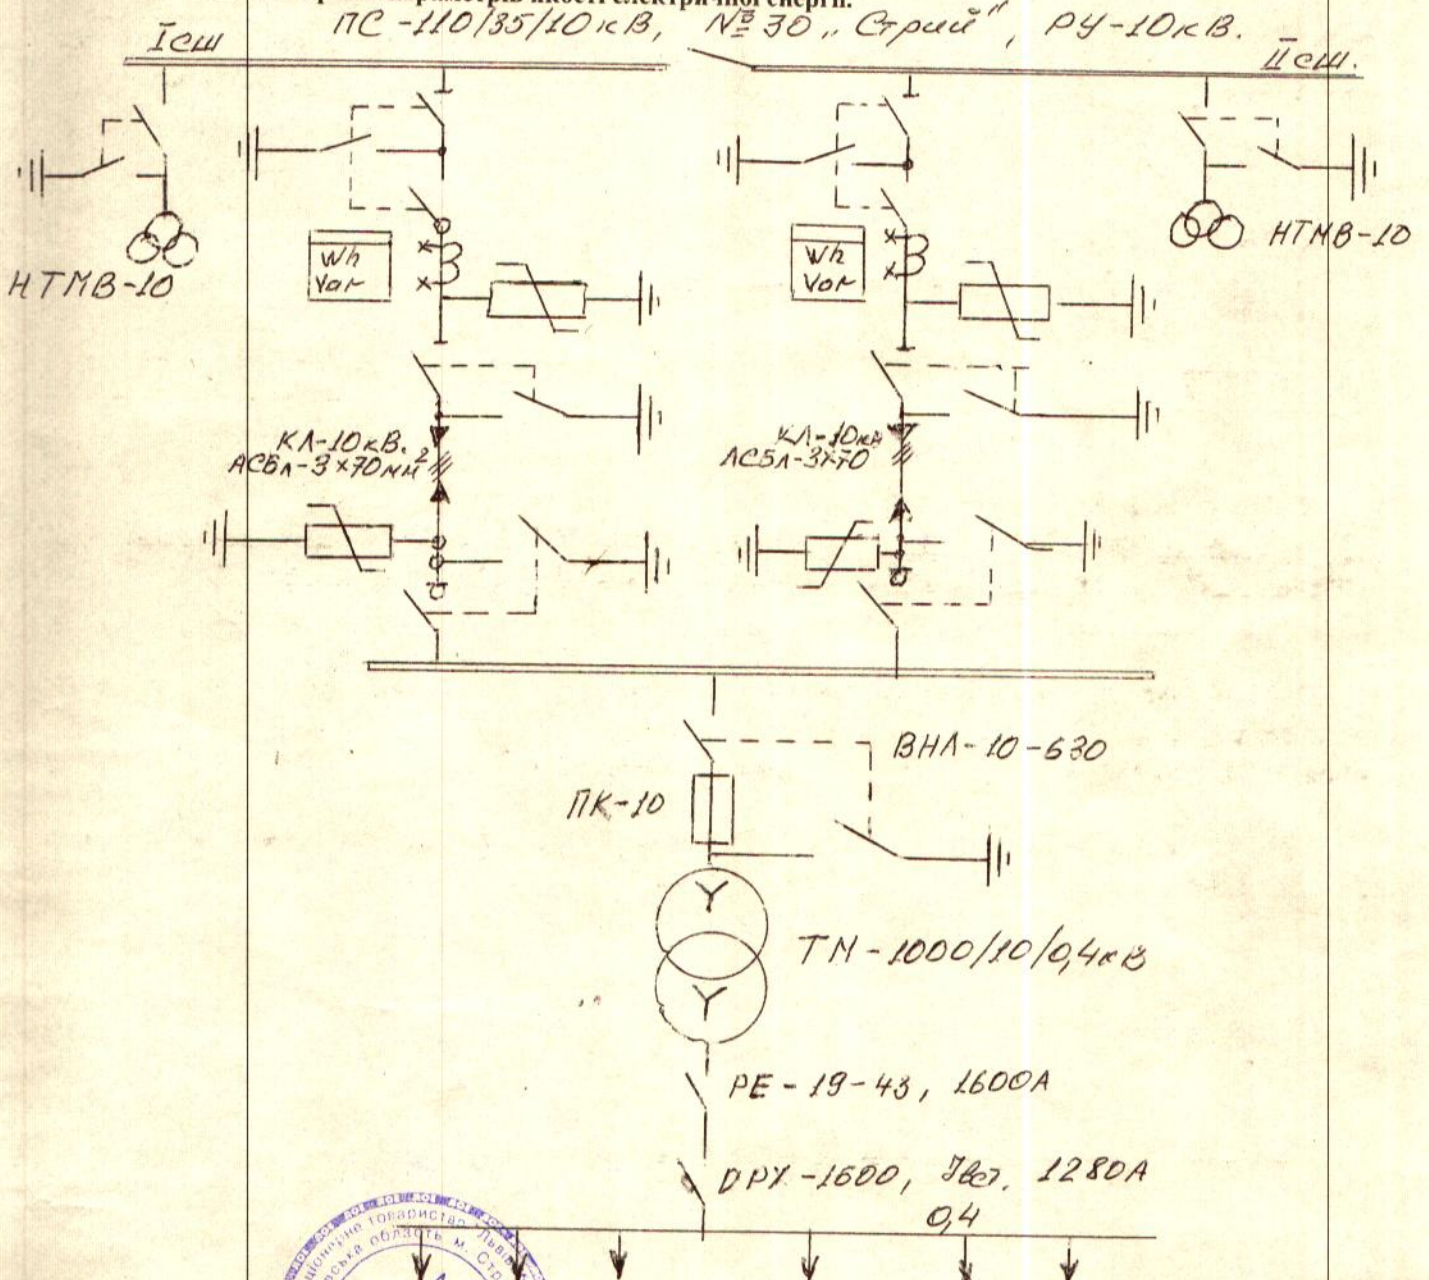 параметрів якості електричної енергії.
ПС-110/35/10кВ, №30 „Стрий", РУ-10кВ.
Iсш
IIсш.
НТМВ-10
Wh
Var
Wh
Var
НТМВ-10
КЛ-10кВ.
АСБл-3×70мм²
КЛ-10кВ
АСБл-3×70
ВНЛ-10-630
ПК-10
Y
ТМ-1000/10/0,4кВ
Y
РЕ-19-43, 1600А
-1600, Iвст. 1280А
0,4
товариство Львів
область м. Стр